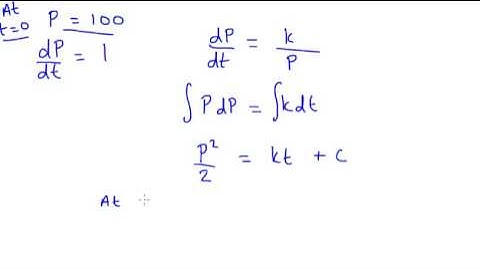 At
t=0 P = 100
dP/dt = 1
dP/dt = k/P
∫ P dP = ∫ k dt
P²/2 = kt + c
At